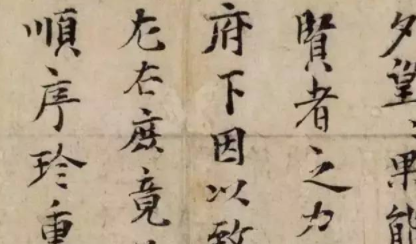 夕望果能
賢者之力
府下因以致
左右庶竟
順序珍重